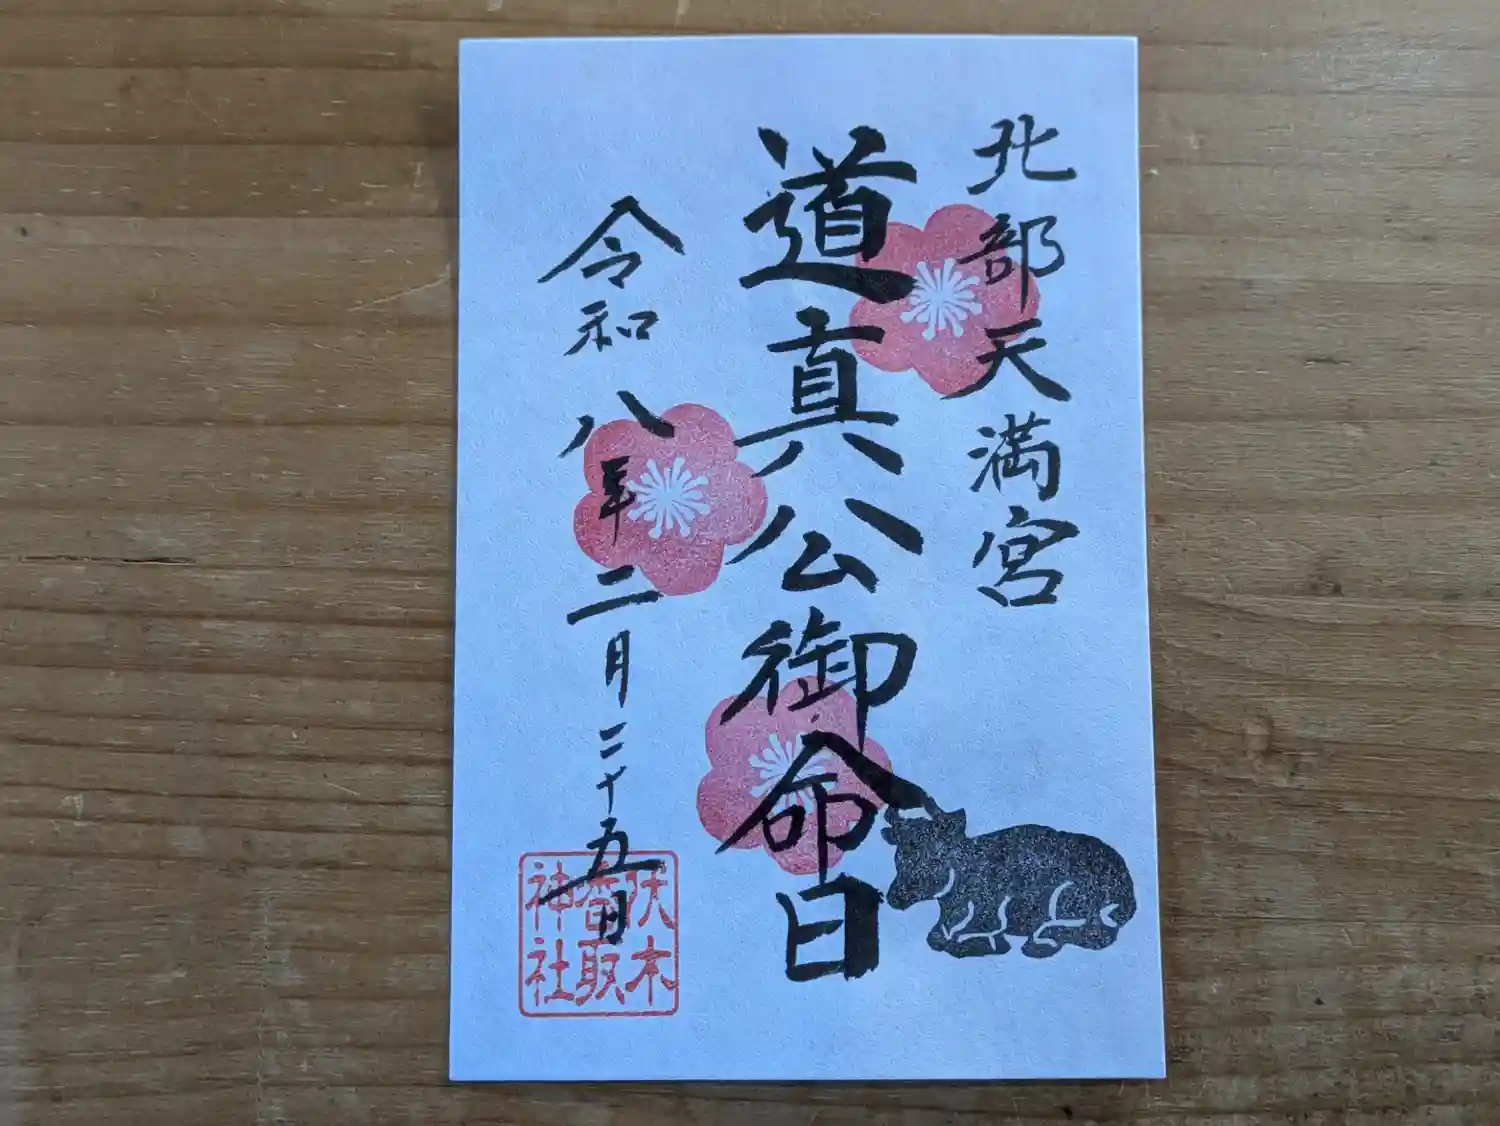 北部天満宮
道真公御命日
令和八年二月二十五日
伏木
香取
神社